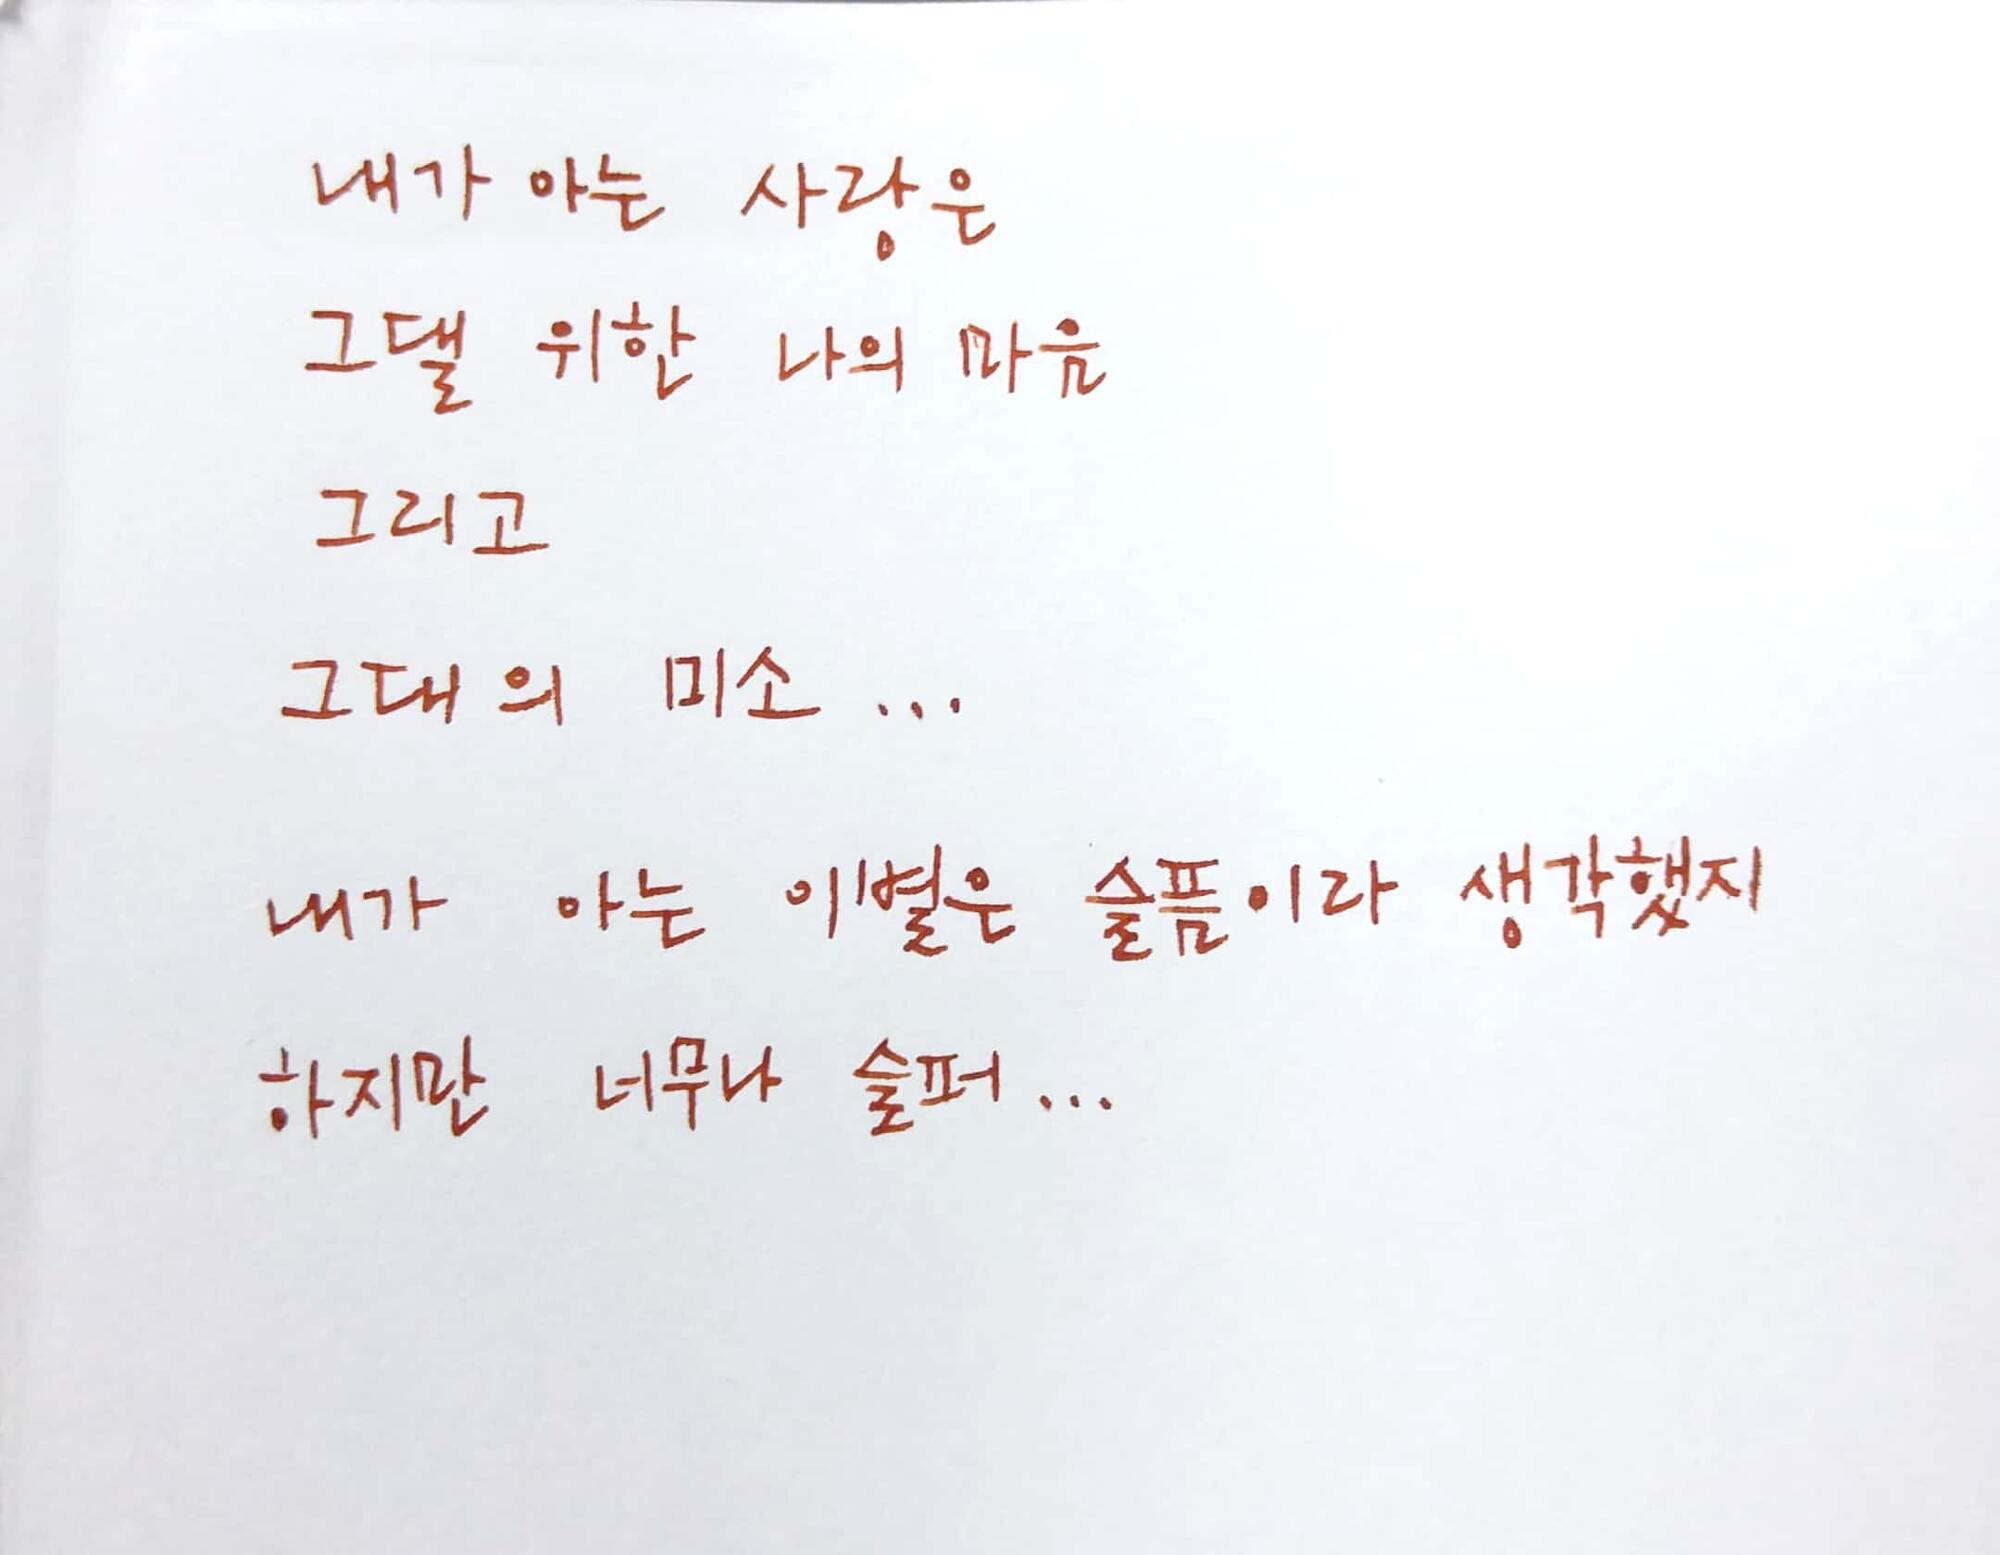 내가 아는 사랑은
그댈 위한 나의 마음
그리고
그대의 미소...
내가 아는 이별은 슬픔이라 생각했지
하지만 너무나 슬퍼...